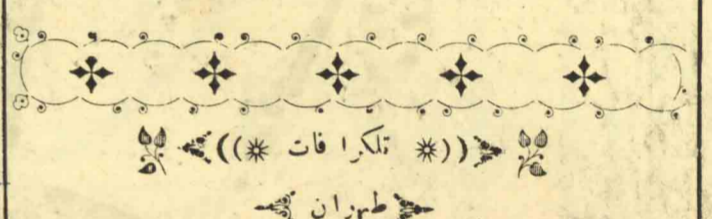 تلکرافات
طهران